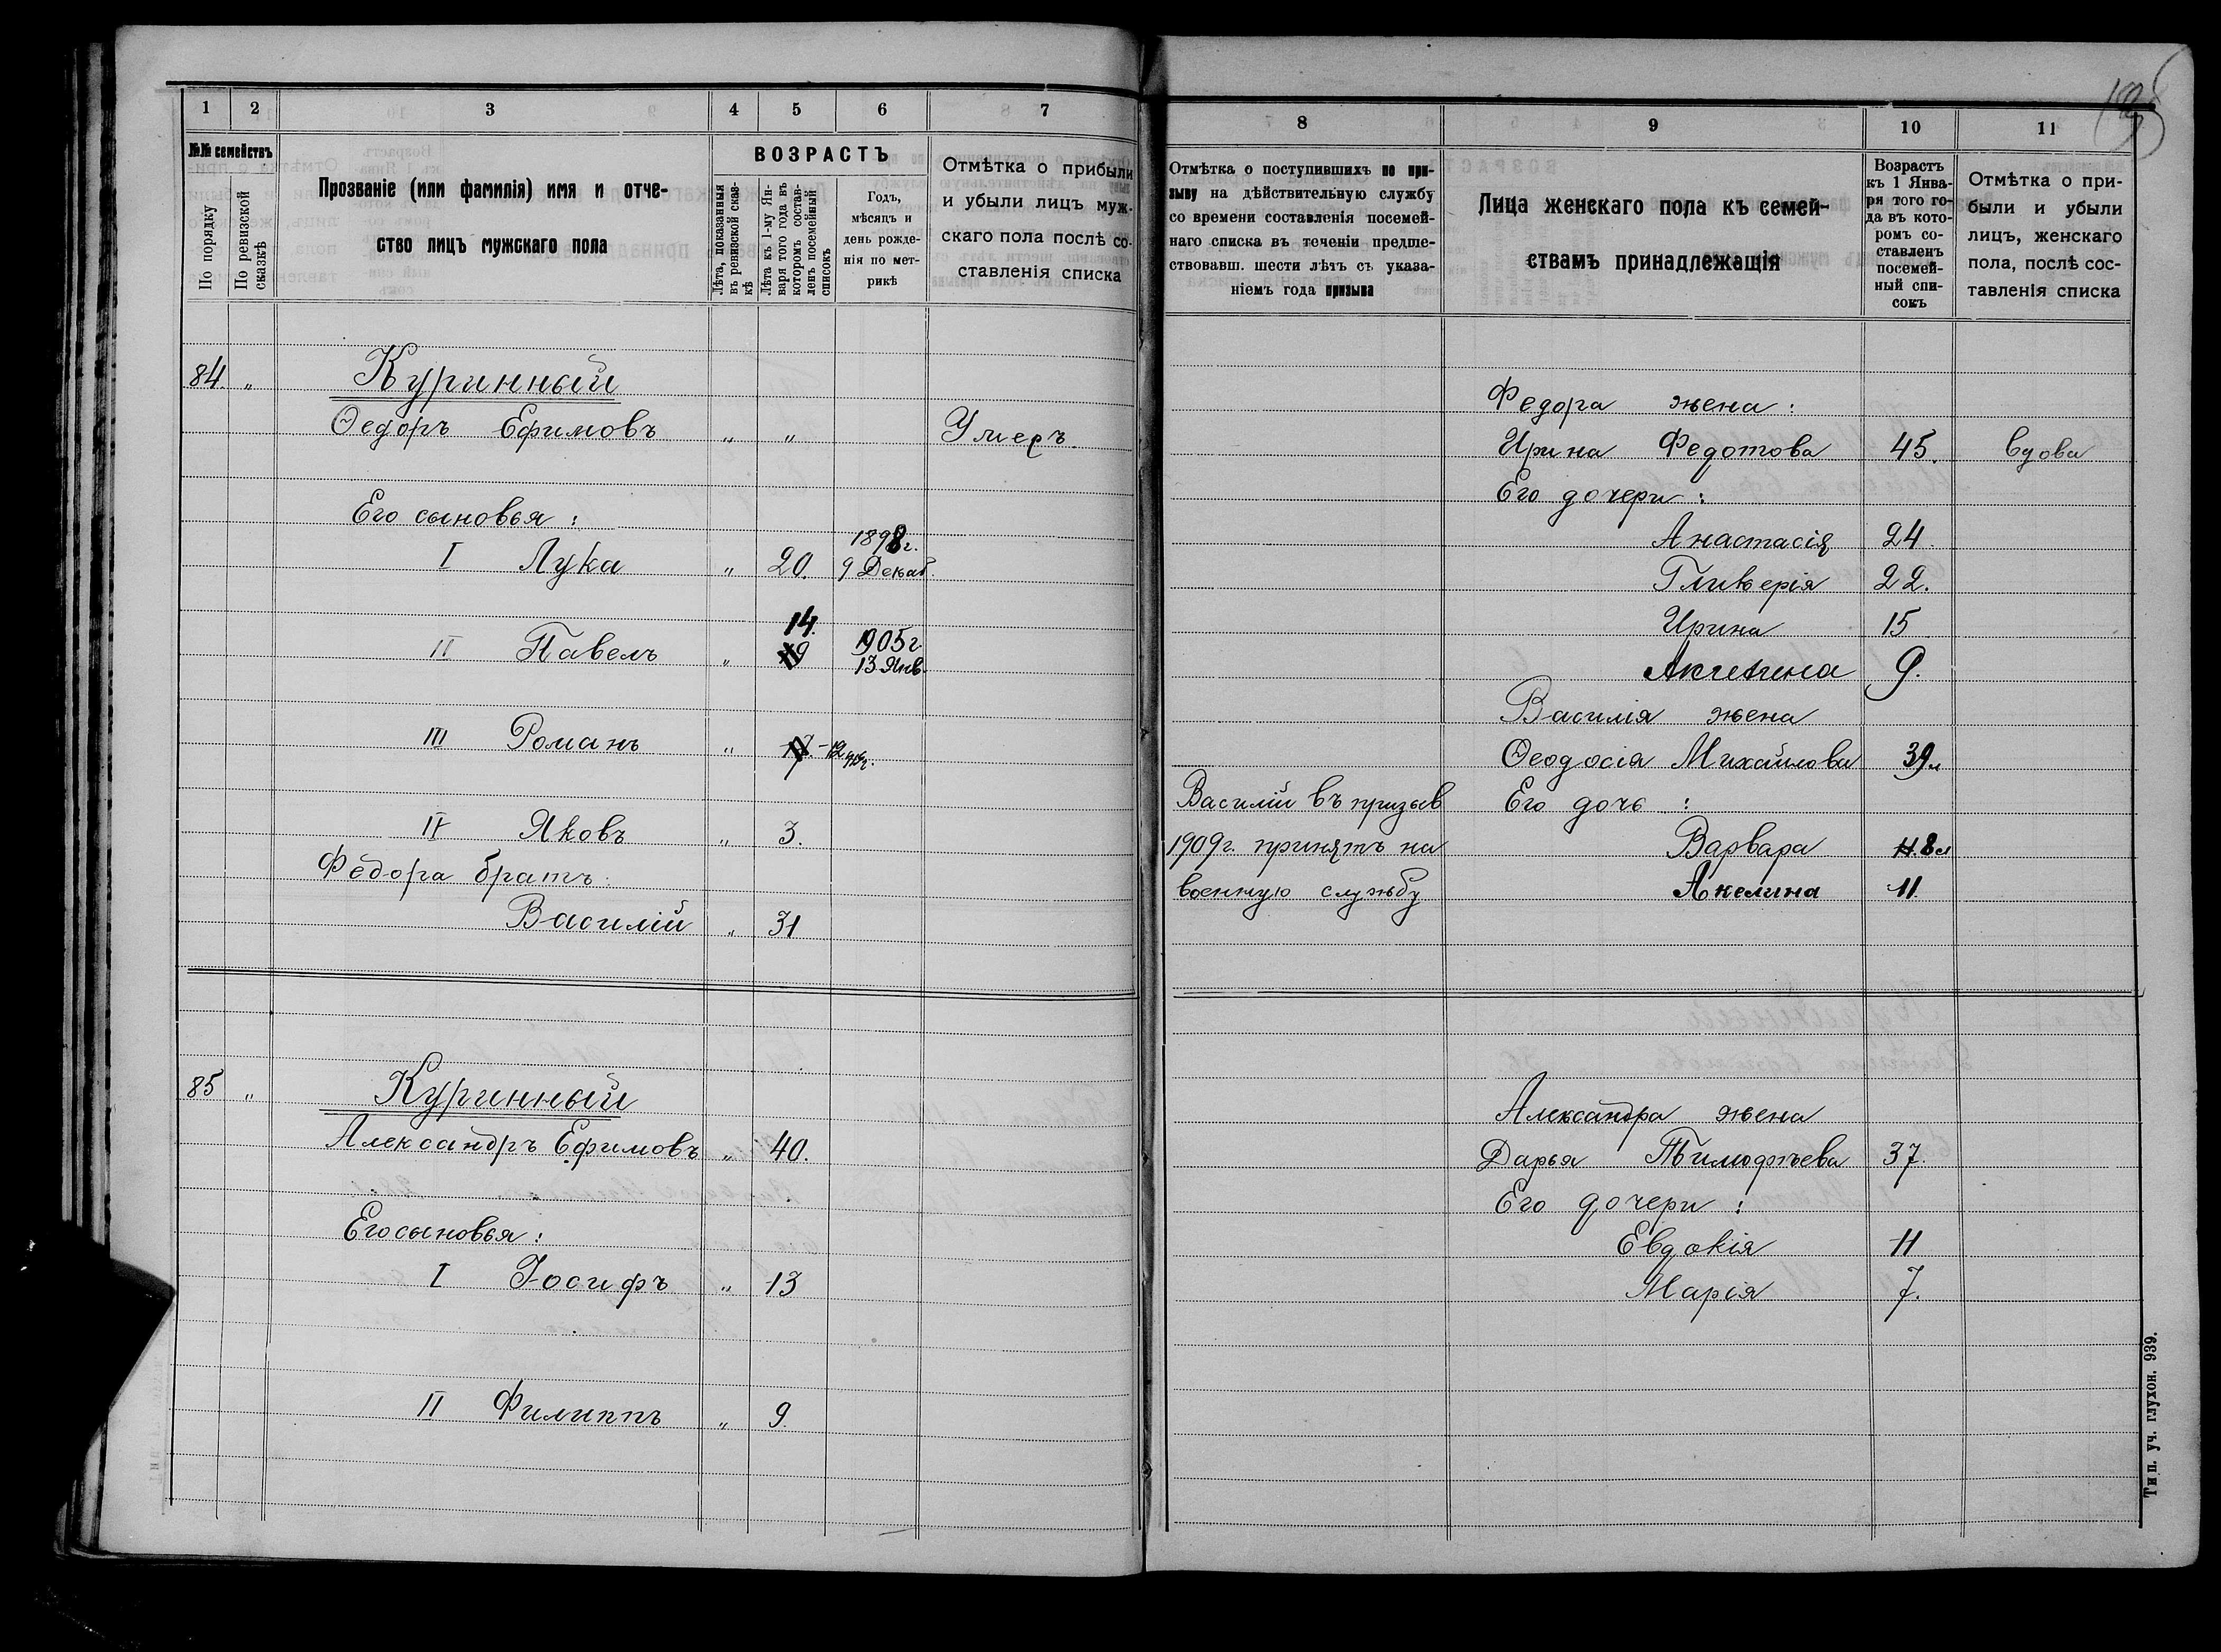 1 2 3 4 5 6 7
№№ семействъ
По порядку
По ревизской сказкѣ
Прозваніе (или фамилія) имя и отче-
ство лицъ мужскаго пола
ВОЗРАСТЪ
Лѣта, показанныя
въ ревизской сказ-
кѣ
Лѣта къ 1-му Ян-
варя того года въ
которомъ состав-
ленъ посемейный
списокъ
Годъ,
мѣсяцъ и
день рожде-
нія по мет-
рикѣ
Отмѣтка о прибыли
и убыли лицъ муж-
скаго пола послѣ со-
ставленія списка
84. „ Куринный
Ѳедоръ Ефимовъ „ „ Умеръ.
Его сыновья :
1898 г.
I Лука „ 20. 9 Декаб.
14.
1905 г.
II Павелъ „ 13 Янв.
III Романъ „ 12
IV Яковъ „ 3.
Федора братъ:
Василій „ 31
85 „ Куринный
Александръ Ефимовъ „ 40.
Его сыновья :
I Іосифъ „ 13
II Филиппъ „ 9.
8 9 10 11
Отмѣтка о поступившихъ по при-
зыву на дѣйствительную службу
со времени составленія посемей-
наго списка въ теченіи предше-
ствовавш. шести лѣтъ съ указа-
ніемъ года призыва
Лица женскаго пола къ семей-
ствамъ принадлежащія
Возрастъ
къ 1 Янва-
ря того го-
да въ кото-
ромъ со-
ставленъ
посемей-
ный спи-
сокъ
Отмѣтка о при-
были и убыли
лицъ, женскаго
пола, послѣ сос-
тавленія списка
Федора жена :
Ирина Федотова 45. вдова
Его дочери :
Анастасія 24.
Гликерія 22.
Ирина 15
9.
Василія жена
Ѳеодосія Михайлова 39 л
Василій въ призыв Его дочь :
1909 г. принятъ на Варвара 11. 8 л
военную службу Акелина 11.
Александра жена
Дарья Тимофѣева 37.
Его дочери :
Евдокія 11
Марія 7.
Тип. уч. глухон. 939.